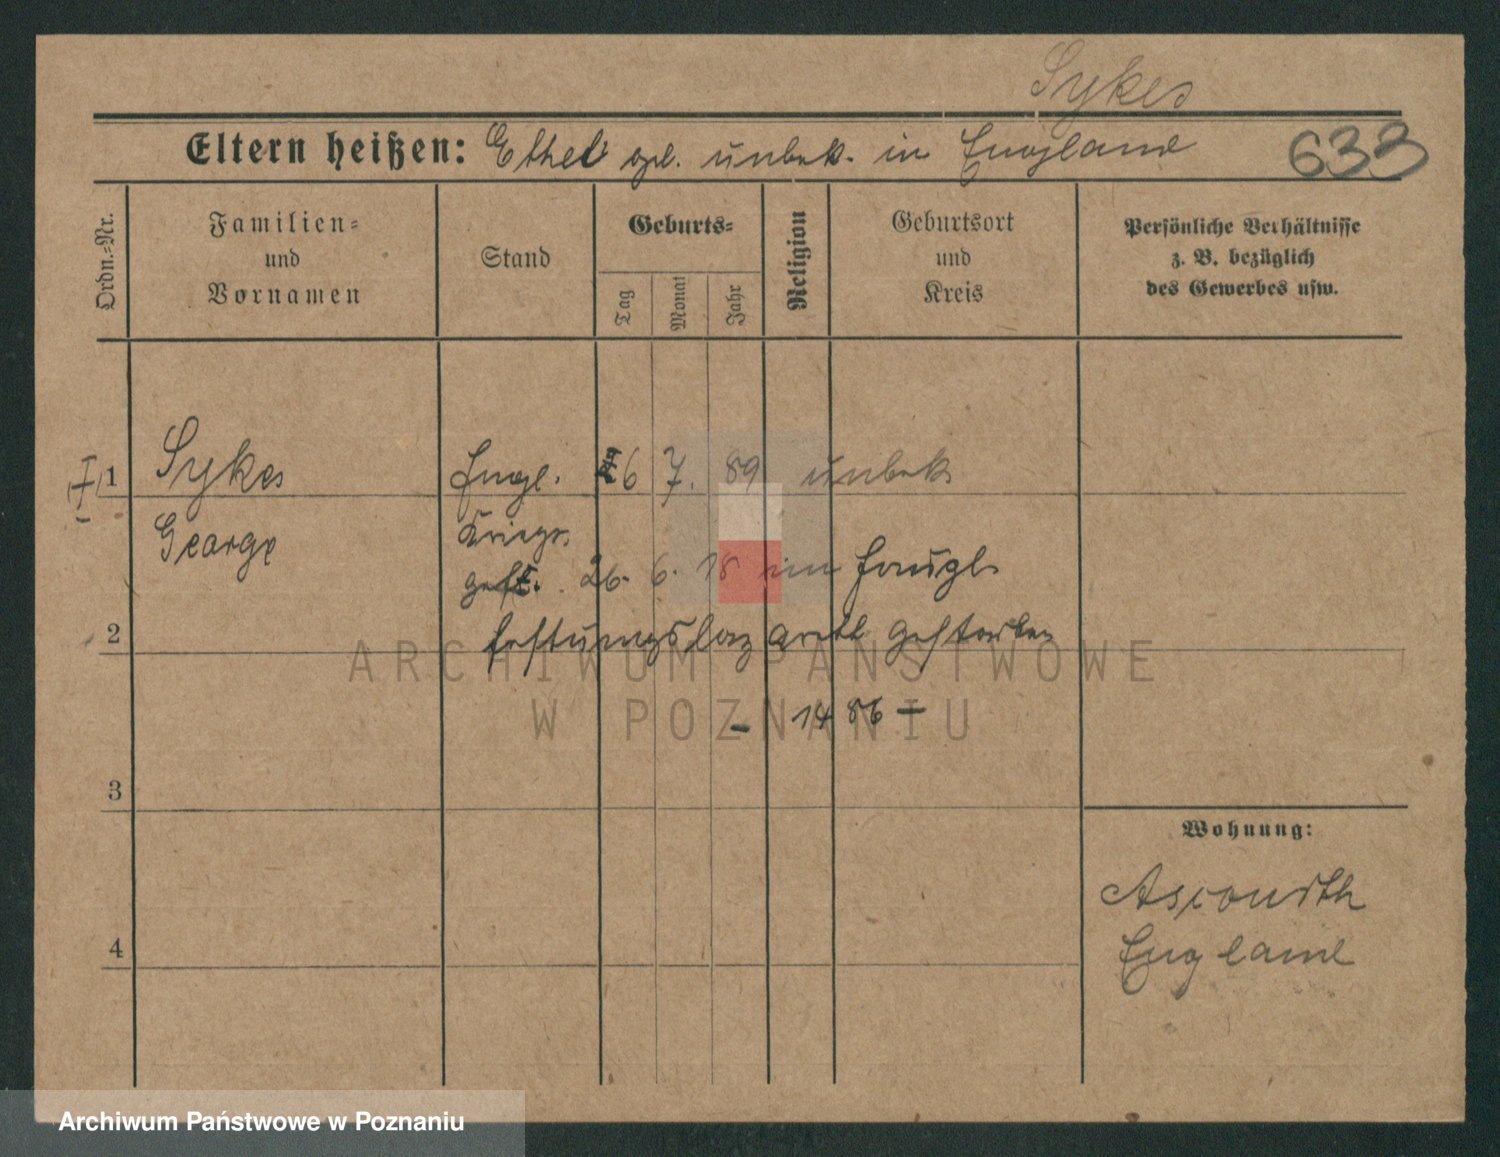 Sykes
Eltern heißen: Ethel unbek. in England 633
Ordn.-Nr.
Familien-
und
Vornamen
Stand
Geburts-
Tag
Monat
Jahr
Religion
Geburtsort
und
Kreis
Persönliche Verhältnisse
z. B. bezüglich
des Gewerbes usw.
1 Sykes Engl. 6 7. 89 unbek
George Kriegs.
gef. 26. 6. 18 im
2 Festungslazarett gestorben
– 1486 –
3
Wohnung:
4
England
ARCHIWUM PAŃSTWOWE
W POZNANIU
Archiwum Państwowe w Poznaniu